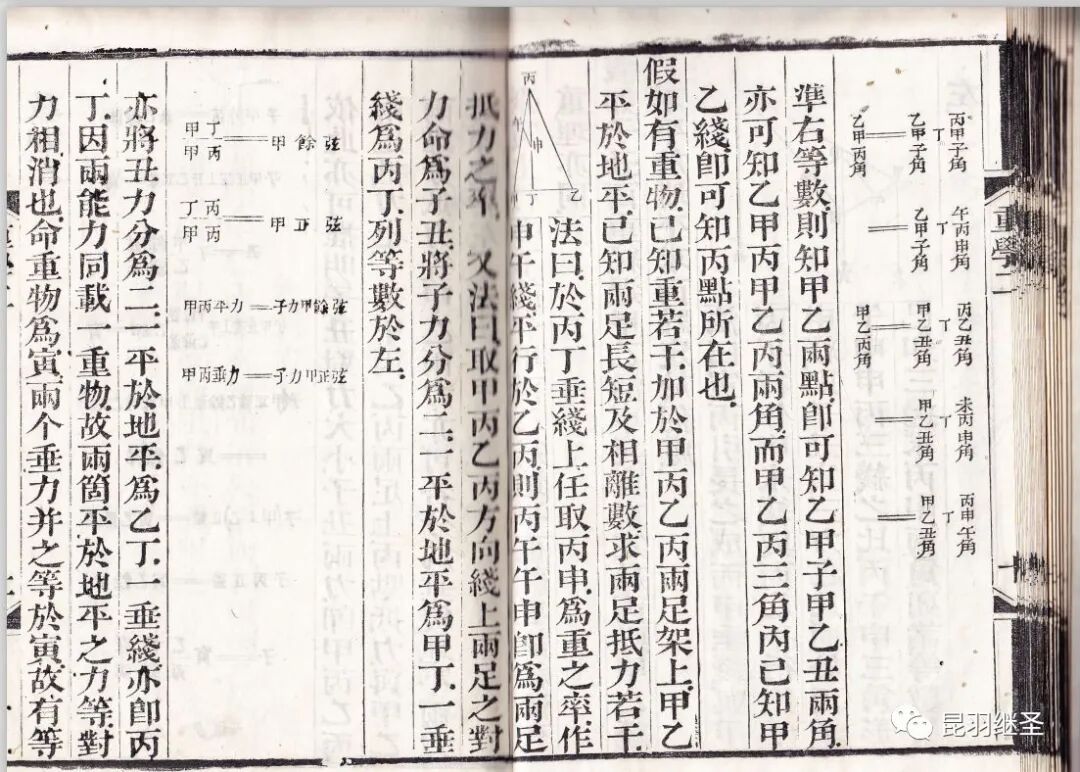 丙甲子角 丁 乙甲子角 ＝ 乙甲丙角
午丙申角 丁 乙甲子角 ＝
丙乙丑角 丁 甲乙丑角 ＝ 甲乙丙角
未丙申角 丁 甲乙丑角 ＝
丙申午角 丁 甲乙丑角 ＝
準右等數則知甲乙兩點卽可知乙甲子甲乙丑兩角
亦可知乙甲丙甲乙丙兩角而甲乙丙三角內已知甲
乙綫卽可知丙點所在也
假如有重物已知重若干加於甲丙乙丙兩足架上甲乙
平於地平已知兩足長短及相離數求兩足抵力若干
丙
午 申
乙 丁 甲
法曰於丙丁垂綫上任取丙申爲重之率作
申午綫平行於乙丙則丙午午申卽爲兩足
抵力之率 又法曰取甲丙乙丙方向綫上兩足之對
力命爲子丑將子力分爲二一平於地平爲甲丁一垂
綫爲丙丁列等數於左
甲丁 甲丙 ＝ 甲餘弦
丁丙 甲丙 ＝ 甲正弦
甲丙平力＝子力甲餘弦
甲丙垂力＝子力甲正弦
亦將丑力分爲二一平於地平爲乙丁一垂綫亦卽丙
丁因兩能力同載一重物故兩箇平於地平之力等對
力相消也命重物爲寅兩个垂力并之等於寅故有等
重學二
昆羽继圣